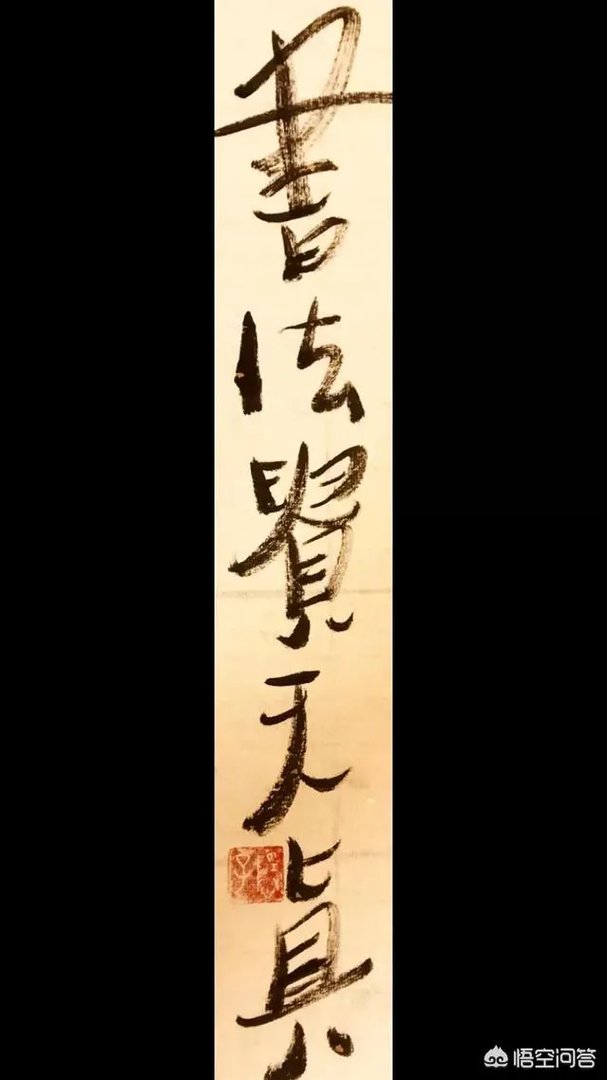 書法貴天真
悟空问答